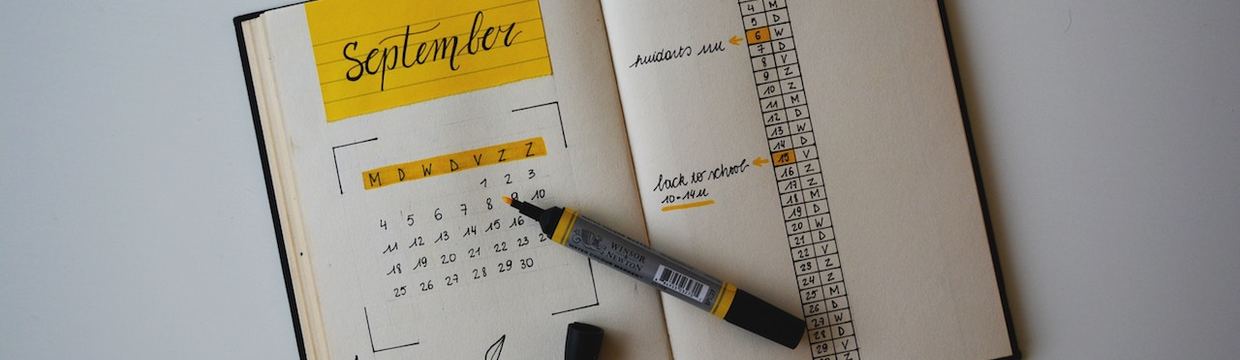 September
M D W D V Z Z
1 2 3
4 5 6 7 8 9 10
11 12 13 14 15 16
18 19 20 21 22 23
25 26 27 28 29 30
WINSOR
& NEWTON
4 M
5 D
huidarts
6 W
7 D
8 V
9 Z
10 Z
11 M
12 D
13 W
14 D
back to school
10-14u
15 V
16 Z
17 Z
18 M
19 D
20 W
21 D
22 V
23 Z
24 Z
25 M
27 W
28 D
29 V